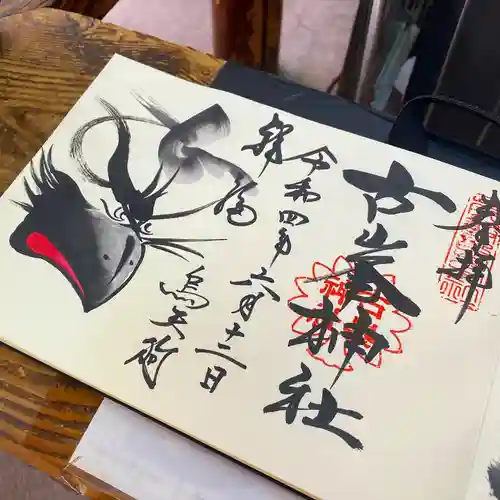 奉拝
古峯神社
令和四年六月十二日
烏天狗